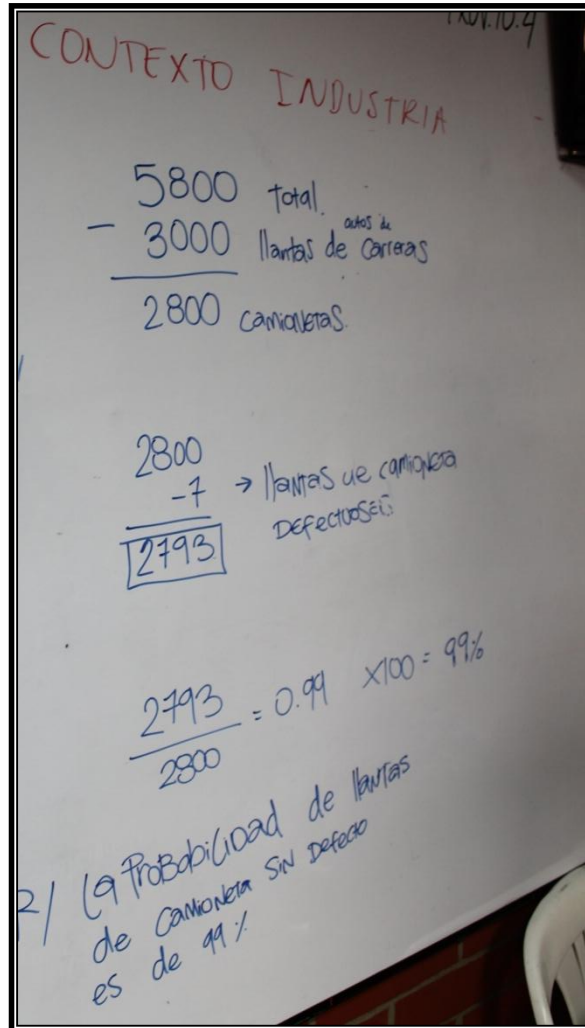 CONTEXTO INDUSTRIA
5800 total.
- 3000 llantas de autos de carreras
2800 camionetas.
2800
-7 → llantas de camioneta
DEFECTUOSAS
2793
2793 = 0.99 x100 = 99%
2800
R/ La Probabilidad de llantas
de camioneta SIN Defecto
es de 99%